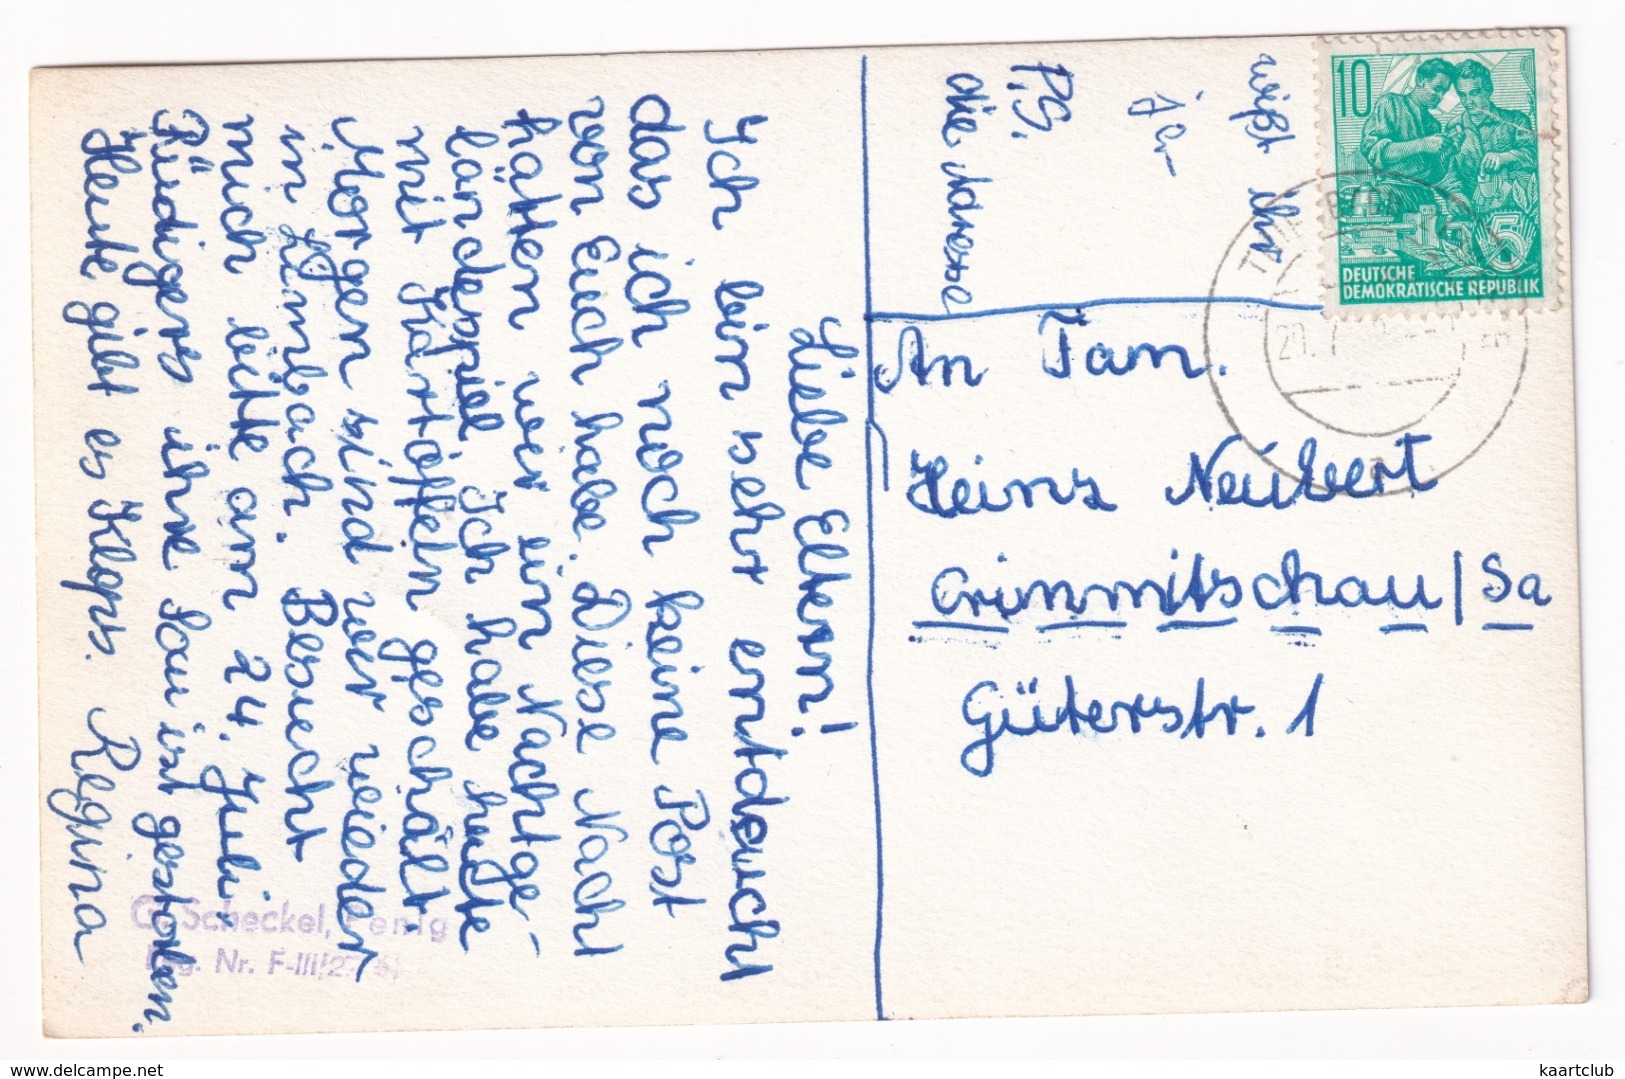 Liebe Eltern!
Ich bin sehr entdeucht
das ich noch keine Post
von Euch habe. Diese Nacht
hätten wir ein Nachtge-
ländespiel Ich habe heute
mit Kartoffeln geschält.
Morgen sind wir wieder
in Limbach. Besucht
mich bitte am 24. Juli.
Rüdigers ihre Sau ist gestorben.
Heute gibt es Klops. Regina
P.S.
die Adresse
wißt Ihr
10
DEUTSCHE
DEMOKRATISCHE REPUBLIK
5
An Fam.
Heinz Neubert
Crimmitschau/Sa
Güterstr. 1
G. Scheckel, Penig
Nr. F-III/2
delcampe.net
kaartclub